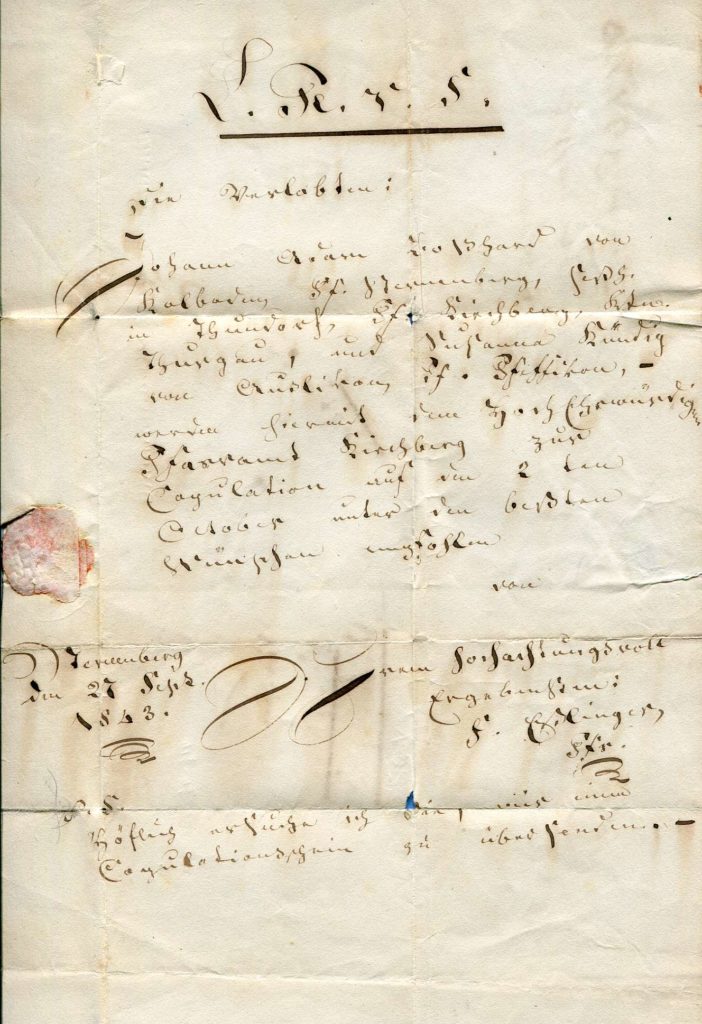 L. R. v. S.
Die Verlobten:
Johann Adam Boßhard von
Kalboden, Pf. Sternenberg, seßh.
in Thundorf, Pf. Kirchberg, Ktn.
Thurgau, und Susanna Kündig
von Auslikon, Pf. Pfeffikon, –
werden hiermit dem HochEhrwürdigen
Pfarramt Kirchberg zur
Copulation auf den 2 ten
October unter den beßten
Wünschen empfohlen
von
Sternenberg
den 27 Sept.
1843.
Ihrem hochachtungsvoll
Ergebensten:
H. Eßlinger,
Pfr.
P. S.
Höflich ersuche ich Sie, mir einen
Copulationsschein zu übersenden. –